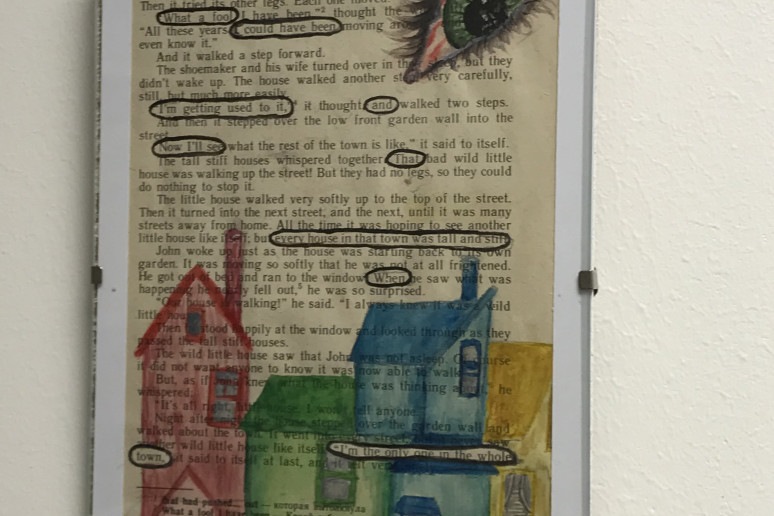 Then it tried its other legs. Each one moved.
"What a fool I have been"² thought the
"All these years I could have been moving
even know it."
And it walked a step forward.
The shoemaker and his wife turned over in but they
didn't wake up. The house walked another very carefully,
still, but much more easily.
"I'm getting used to it," it thought and walked two steps.
And then it stepped over the low front garden wall into the
street.
"Now I'll see what the rest of the town is like," it said to itself.
The tall stiff houses whispered together. That bad wild little
house was walking up the street! But they had no legs, so they could
do nothing to stop it.
The little house walked very softly up to the top of the street.
Then it turned into the next street, and the next, until it was many
streets away from home. All the time it was hoping to see another
little house like itself; but every house in that town was tall and stiff
John woke up just as the house was starting back to its own
garden. It was moving so softly that he was not at all frightened.
He got out of bed and ran to the window. When he saw what was
happening he nearly fell out,⁵ he was so surprised.
"Our house is walking!" he said. "I always knew it was a wild
little house
Then stood happily at the window and looked through as they
passed the tall stiff houses.
The wild little house saw that John was not asleep. Of course
it did not want anyone to know it was now able to walk
But, as if John knew what the house was thinking about, he
whispered:
"It's all right, house, I won't tell anyone
Night after night the house stepped over the garden wall and
walked about the town. It went into every street
another wild little house like itself. "I'm the only one in the whole
town," it said to itself at last, and it
that had pushed out — которая
What a fool I have been